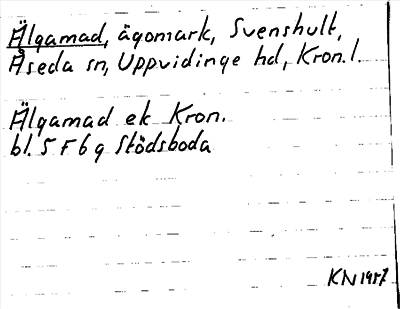 Älgamad, ägomark, Svenshult,
Åseda sn, Uppvidinge hd, Kron. l.
Älgamad ek Kron.
bl. 5 F 6 g Stödsboda
KN 1957